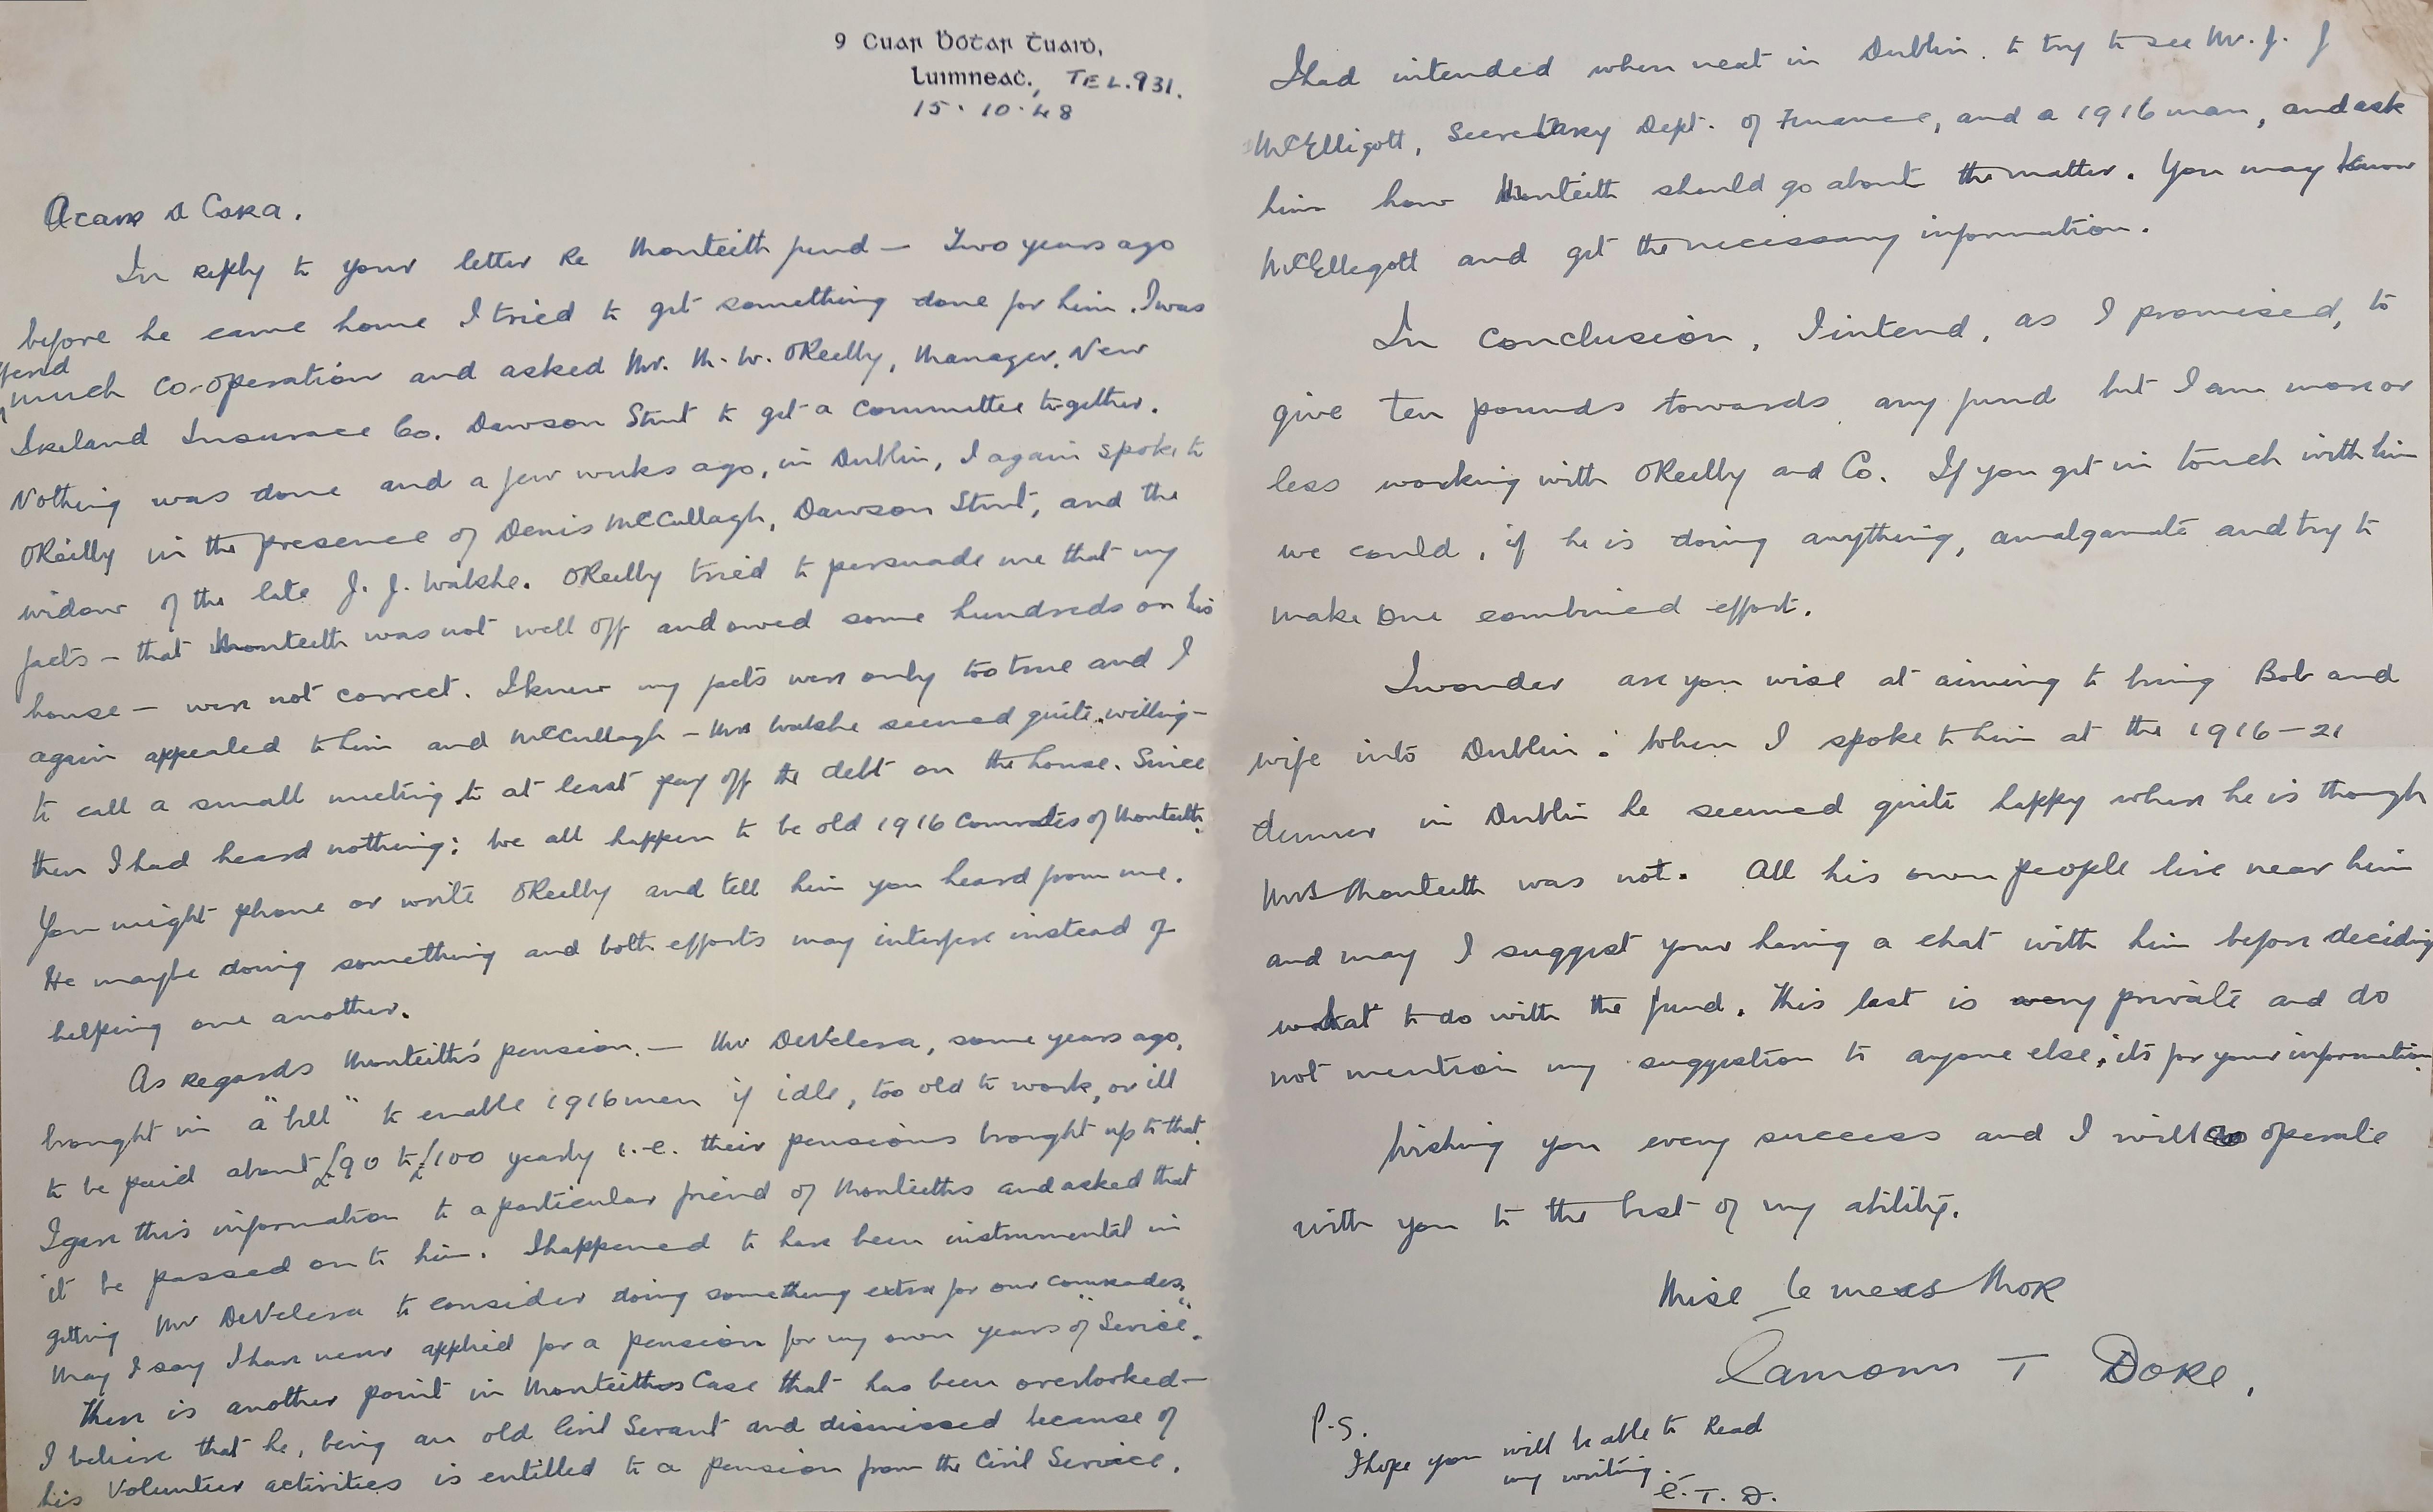 9 Cuar Bótar Tuaid,
Luimneac., TEL. 931.
15.10.48
A Cara.
In reply to your letter re Monteith fund — Two years ago
before he came home I tried to get something done for him. I was
much co-operation and asked Mr. M. W. OReilly, Manager, New
Ireland Insurance Co. Dawson Street to get a committee together.
Nothing was done and a few weeks ago, in Dublin, I again spoke to
OReilly in the presence of Denis McCullagh, Dawson Street, and the
widow of the late J. J. Walshe. OReilly tried to persuade me that my
facts — that Monteith was not well off and owed some hundreds on his
house — were not correct. I knew my facts were only too true and I
again appealed to him and McCullagh — Mrs Walshe seemed quite willing —
to call a small meeting to at least pay off the debt on the house. Since
then I had heard nothing; We all happen to be old 1916 Comrades of Monteith.
You might phone or write OReilly and tell him you heard from me.
He maybe doing something and both efforts may interfere instead of
helping one another.
As regards Monteith's pension. — Mr DeValera, some years ago,
brought in a "bill" to enable 1916 men if idle, too old to work, or ill
to be paid about £90 to £100 yearly i.e. their pensions brought up to that.
I gave this information to a particular friend of Monteiths and asked that
it be passed on to him. I happened to have been instrumental in
getting Mr DeValera to consider doing something extra for our comrades,
May I say I have never applied for a pension for my own years of "Service".
There is another point in Monteiths Case that has been overlooked —
I believe that he, being an old Civil Servant and dismissed because of
his Volunteer activities is entitled to a pension from the Civil Service.
I had intended when next in Dublin to try to see Mr. J. J
McElligott, Secretary Dept. of Finance, and a 1916 man, and ask
him how Monteith should go about the matter. You may know
McElligott and get the necessary information.
In conclusion, I intend, as I promised, to
give ten pounds towards any fund but I am more or
less working with OReilly and Co. If you get in touch with him
we could, if he is doing anything, amalgamate and try to
make one combined effort.
I wonder are you wise at aiming to bring Bob and
wife into Dublin. When I spoke to him at the 1916–21
dinner in Dublin he seemed quite happy where he is though
Mrs Monteith was not. All his own people live near him
and may I suggest your having a chat with him before deciding
what to do with the fund. This last is very private and do
not mention my suggestion to anyone else, its for your information.
Wishing you every success and I will co operate
with you to the best of my ability.
Mise le meas Mor
Eamonn T Dore,
P.S.
I hope you will be able to Read
my writing.
E. T. D.